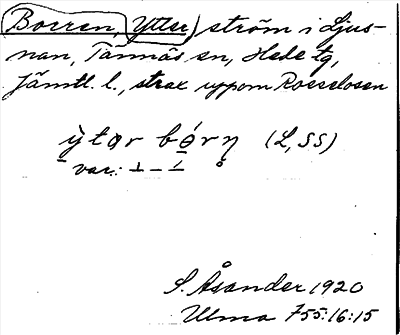 Borren, Ytter, ström i Ljus-
nan, Tännäs sn, Hede tg,
Jämtl. l., strax uppom Rosselosen
ytər bórη (L, SS)
var:
S. Åsander 1920
Ulma 755:16:15